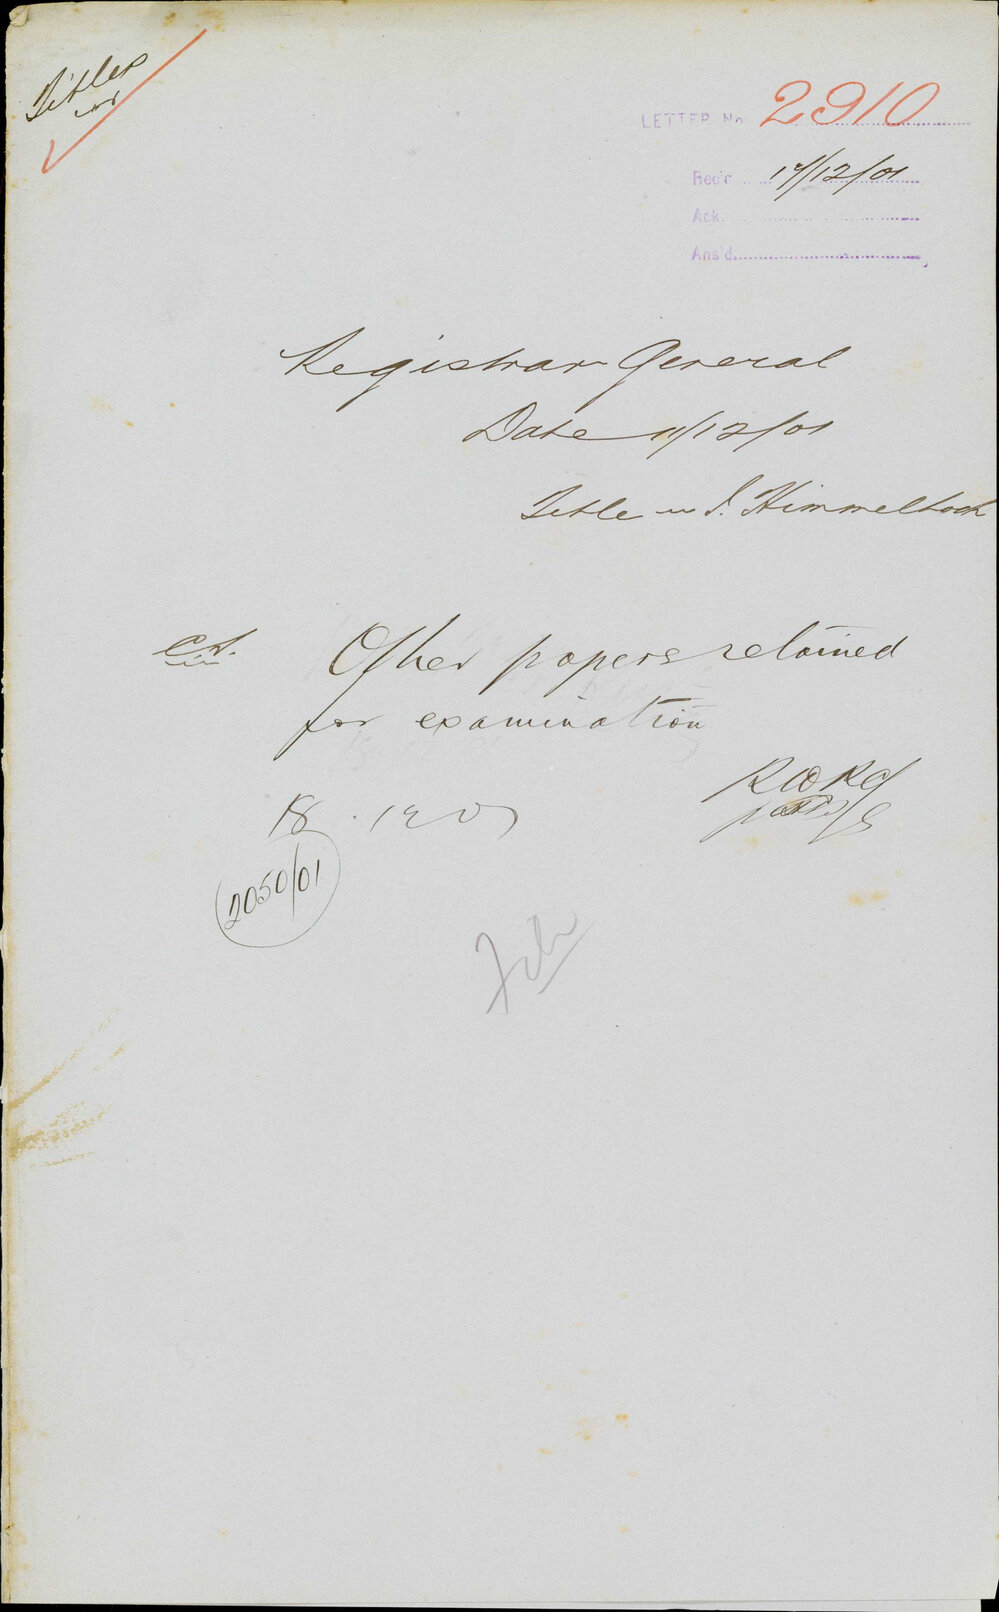 Titles
LETTER No 2910
Rec'd 17/12/01
Ack.
Ans'd
Registrar General
Date 11/12/01
Title J. Himmelhoch
C.S.
Other papers retained
for examination
18
2050/01